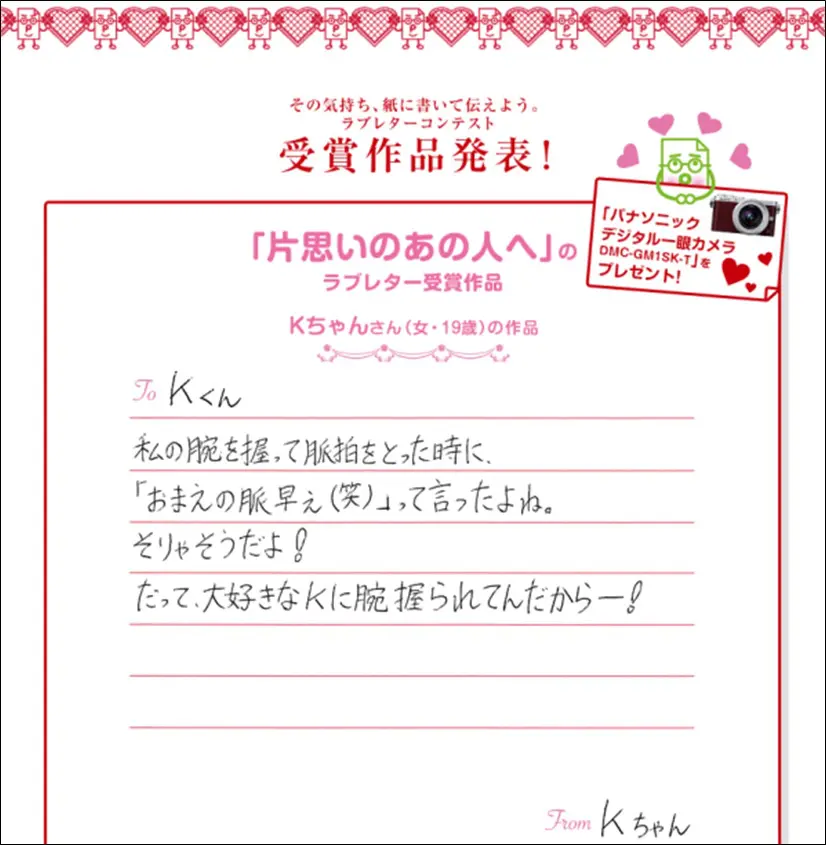 その気持ち、紙に書いて伝えよう。
ラブレターコンテスト
受賞作品発表!
「パナソニック
デジタル一眼カメラ
DMC-GM1SK-T」を
プレゼント!
「片思いのあの人へ」の
ラブレター受賞作品
Kちゃんさん(女・19歳)の作品
To Kくん
私の腕を握って脈拍をとった時に、
「おまえの脈早ぇ(笑)」って言ったよね。
そりゃそうだよ!
だって、大好きなKに腕握られてんだからー!
From Kちゃん